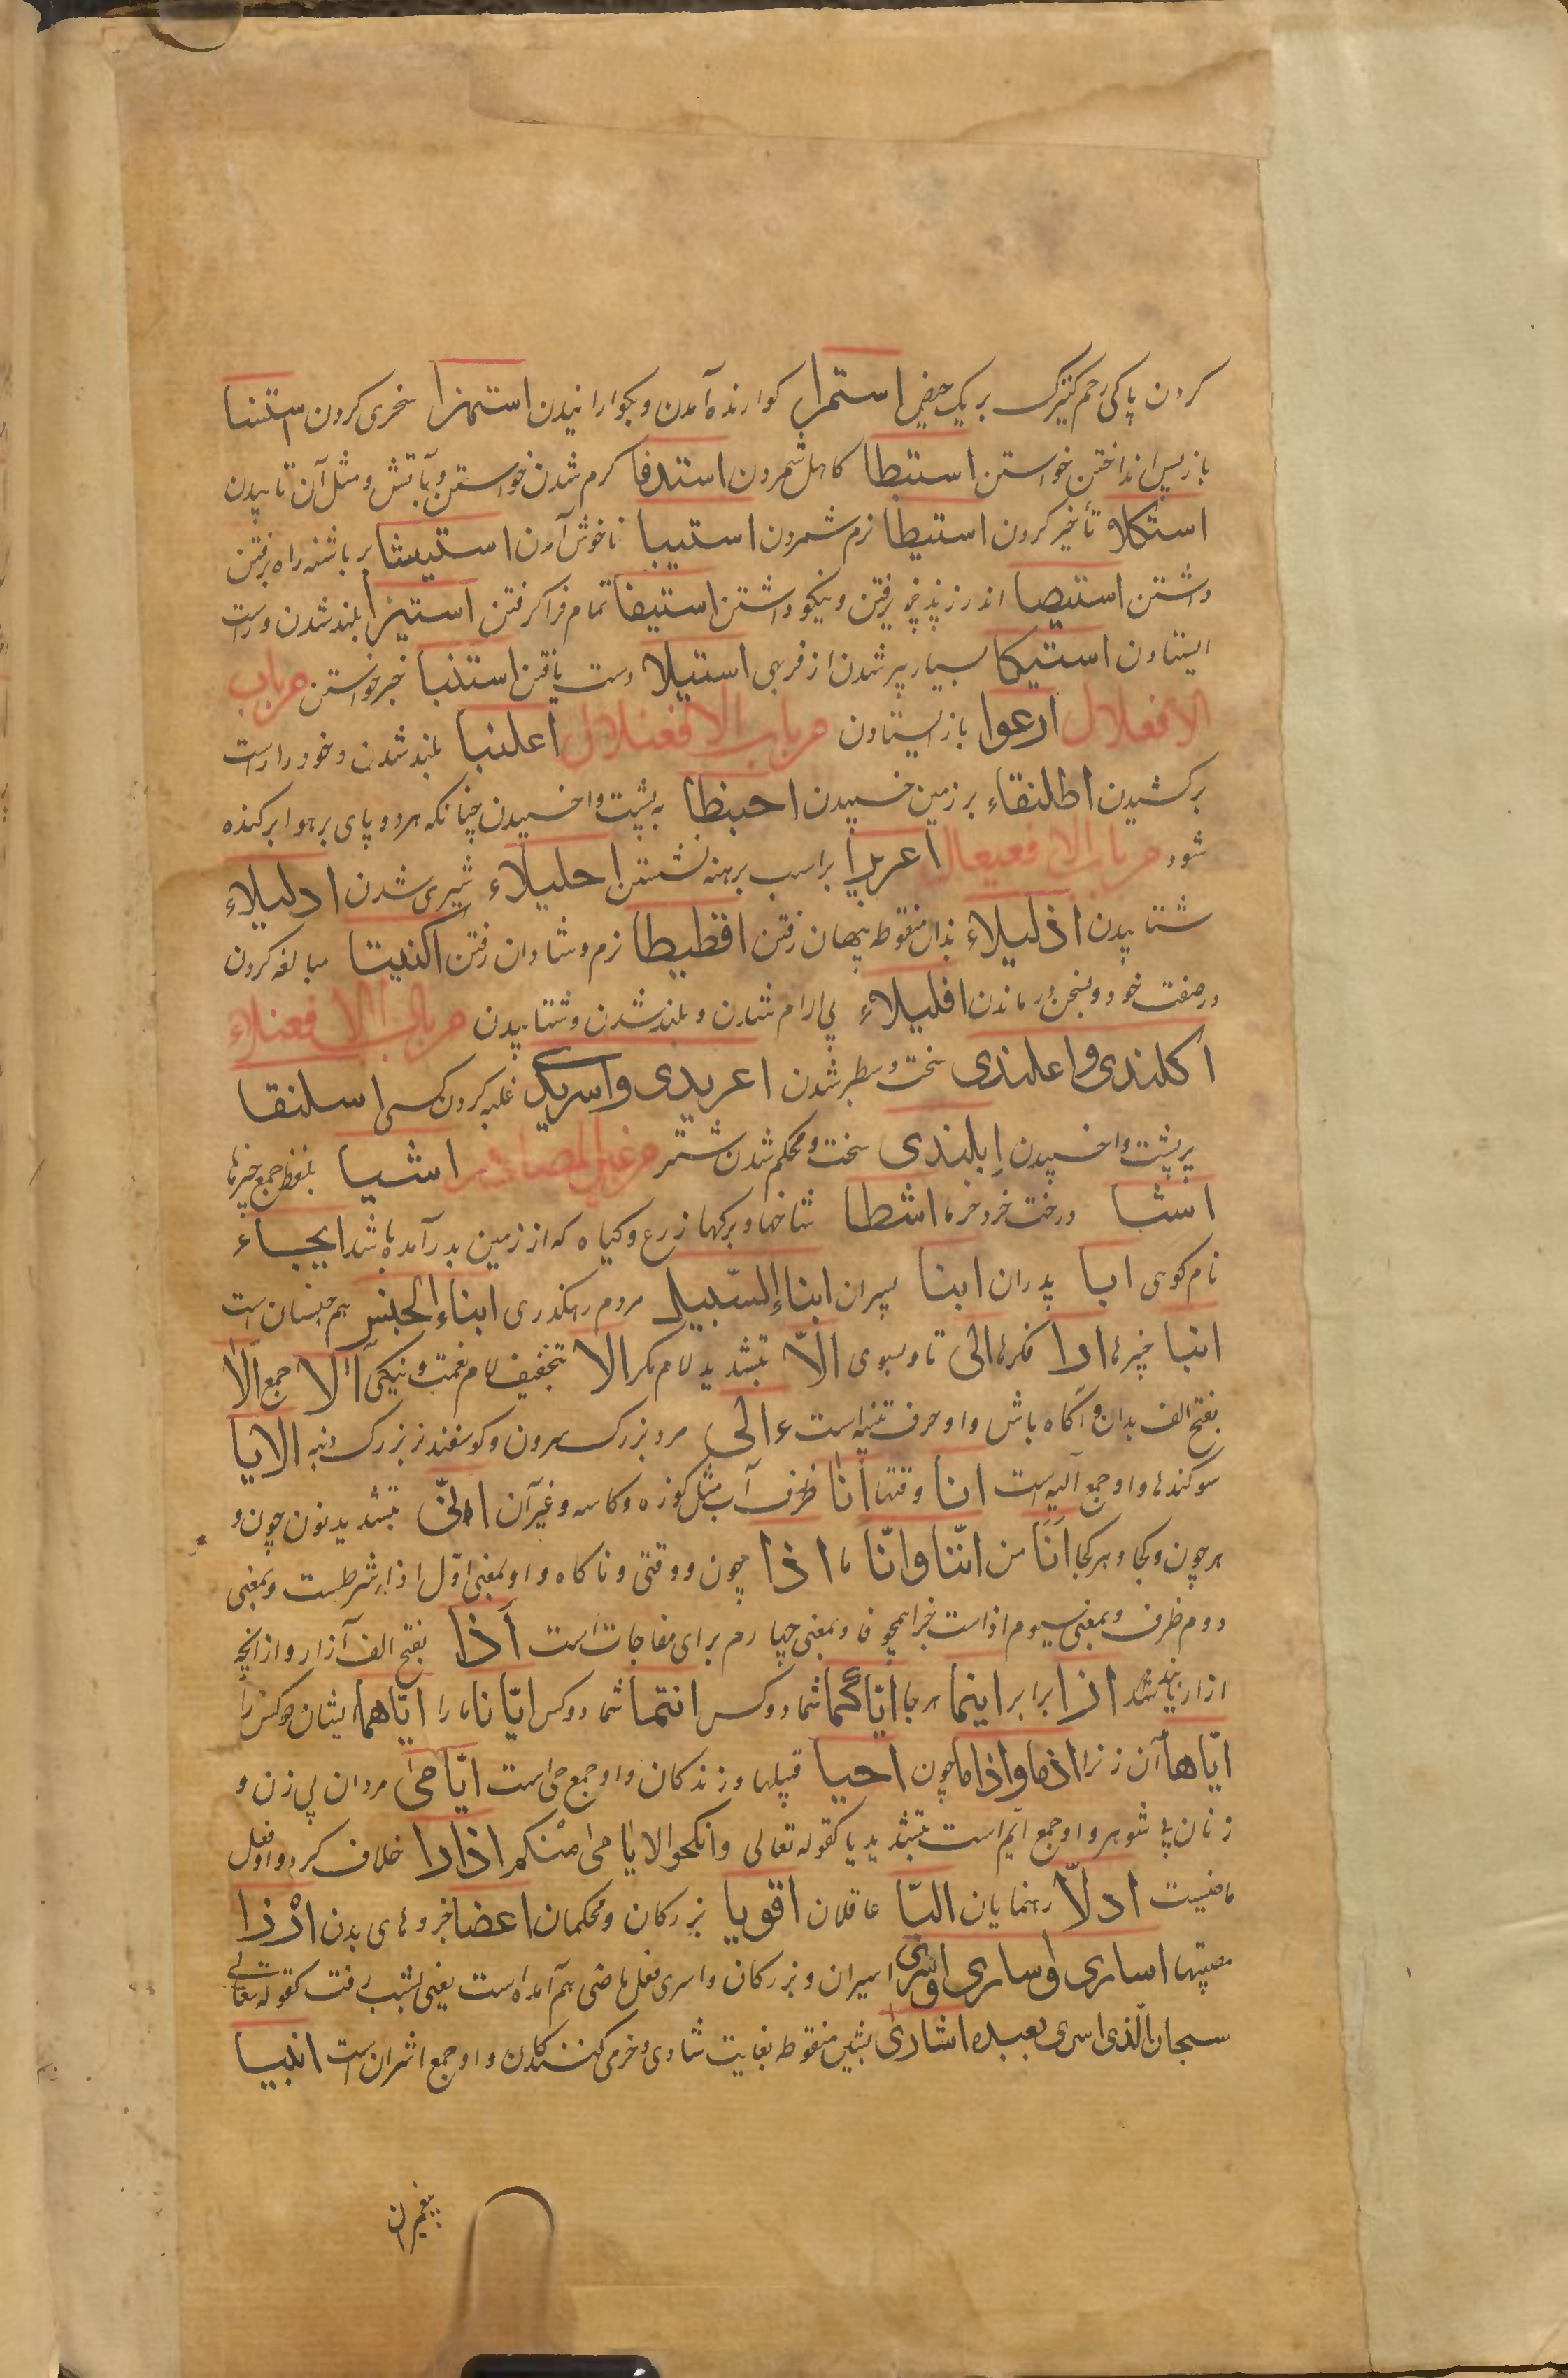 کردن پاکی رحم کنیزک بر یک حیض استمرا کوارنده آمدن و بکوارانیدن استهزا سخری کردن استنسا
باز پس انداختن خواستن استبطا کاهل شمردن استدفا کرم شدن خواستن و بآتش و مثل آن تابیدن
استکلا تأخیر کردن استیطا نرم شمردن استیبا ناخوش آمدن استیشا بر باشنه راه رفتن
داشتن استیصا اندرز پذیرفتن و نیکو داشتن استیفا تمام فرا کرفتن استیزا بلند شدن و راست
ایستادن استیکا بسیار پر شدن از فربهی استیلا دست یافتن استنبا خبر خواستن من باب
الافعلال ارعوا باز ایستادن من باب الافعنلال اعلنبا بلند شدن و خود را راست
برکشیدن اطلنقاء بر زمین خسپیدن احبنطا به پشت واخسپیدن چنانکه هر دو پای بر هوا برکنده
شود من باب الافعیعال اعریرا بر اسب برهنه نشستن احلیلاء شیری شدن ادلیلاء
شتابیدن اذلیلاء بذال منقوطه پنهان رفتن اقطیطا نرم و شادان رفتن اکتیتا مبالغه کردن
در صفت خود و بسخن درماندن اقلیلاء بی ارام شدن و بلند شدن و شتابیدن من باب الافعنلاء
اکلندی و اعلندی سخت و سطبر شدن اعریدی و اسریدی غلبه کردن کسی اسلنقا
بر پشت واخسپیدن ابلندی سخت و محکم شدن شتر من غیر المصادر اشیا بلفظ جمع چیزها
اشا درخت خرد خرما اشطا شاخها و برکها زرع و کیاه که از زمین بدر آمده باشد ایجاء
نام کوهی ابا پدران ابنا پسران ابناء السّبیل مردم رهکذری ابناء الجنس هم جنسان است
انبا خبرها ارا فکرها الی تا و بسوی الّا بتشدید لام مکر الا بتخفیف لام نعمت و نیکی آلا جمع الا
بفتح الف بدان و آکاه باش و او حرف تنبیه است ء الی مرد بزرک سرون و کوسفند نر بزرک دنبه الایا
سوکندها و او جمع آلیه است انا وقتها انا ظرف آب مثل کوزه و کاسه و غیر آن انّی بتشدید نون چون و
هر چون و کجا و هر کجا انا من انّنا و انّا ما اذا چون و وقتی و ناکاه و او بمعنی اوّل اذا شرطست و بمعنی
دوم ظرف و بمعنی سیوم اذاست خبر همچو فا و بمعنی چهارم برای مفاجات است اذا بفتح الف آزار و از انچه
ازار یابند ازا برابر اینما هر جا ایّاکما شما دو کس انتما شما دو کس ایّانا ما را ایّاهما ایشان دو کس را
ایّاها آن زن را اذما و اذاما چون احیا قبیلها و زندکان و او جمع حی است ایّامی مردان بی زن و
زنان بی شوهر و او جمع ایّم است بتشدید یا کقوله تعالی و انکحوا الایامی منکم اذارا خلاف کرد و او فعل
ماضیست ادلّا رهنمایان البّا عاقلان اقویا بزرکان و محکمان اعضا جزوهای بدن ارْزا
مصیبتها اساری و ساری و اسری اسیران و بزرکان و اسری فعل ماضی هم آمده است یعنی بشب رفت کقوله تعالی
سبحان الّذی اسری بعبده اشاری بشین منقوطه بغایت شادی و خرمی کنندکان و او جمع اشران است انبیا
پیغمبران